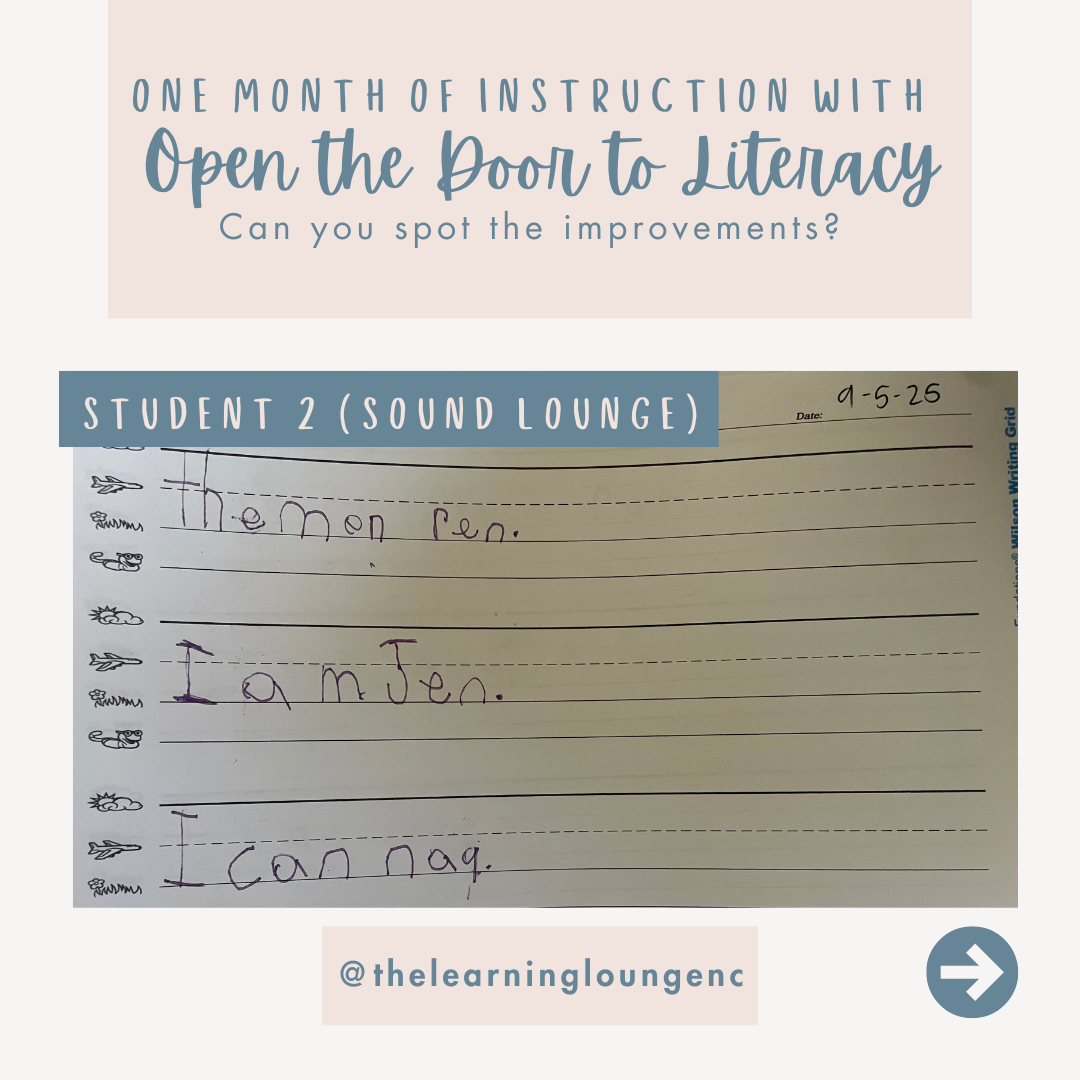 ONE MONTH OF INSTRUCTION WITH
Open the Door to Literacy
Can you spot the improvements?
STUDENT 2 (SOUND LOUNGE)
Date: 9-5-25
the men ren.
I am Jen.
I can nag.
Fundations® Wilson Writing Grid
@thelearningloungenc